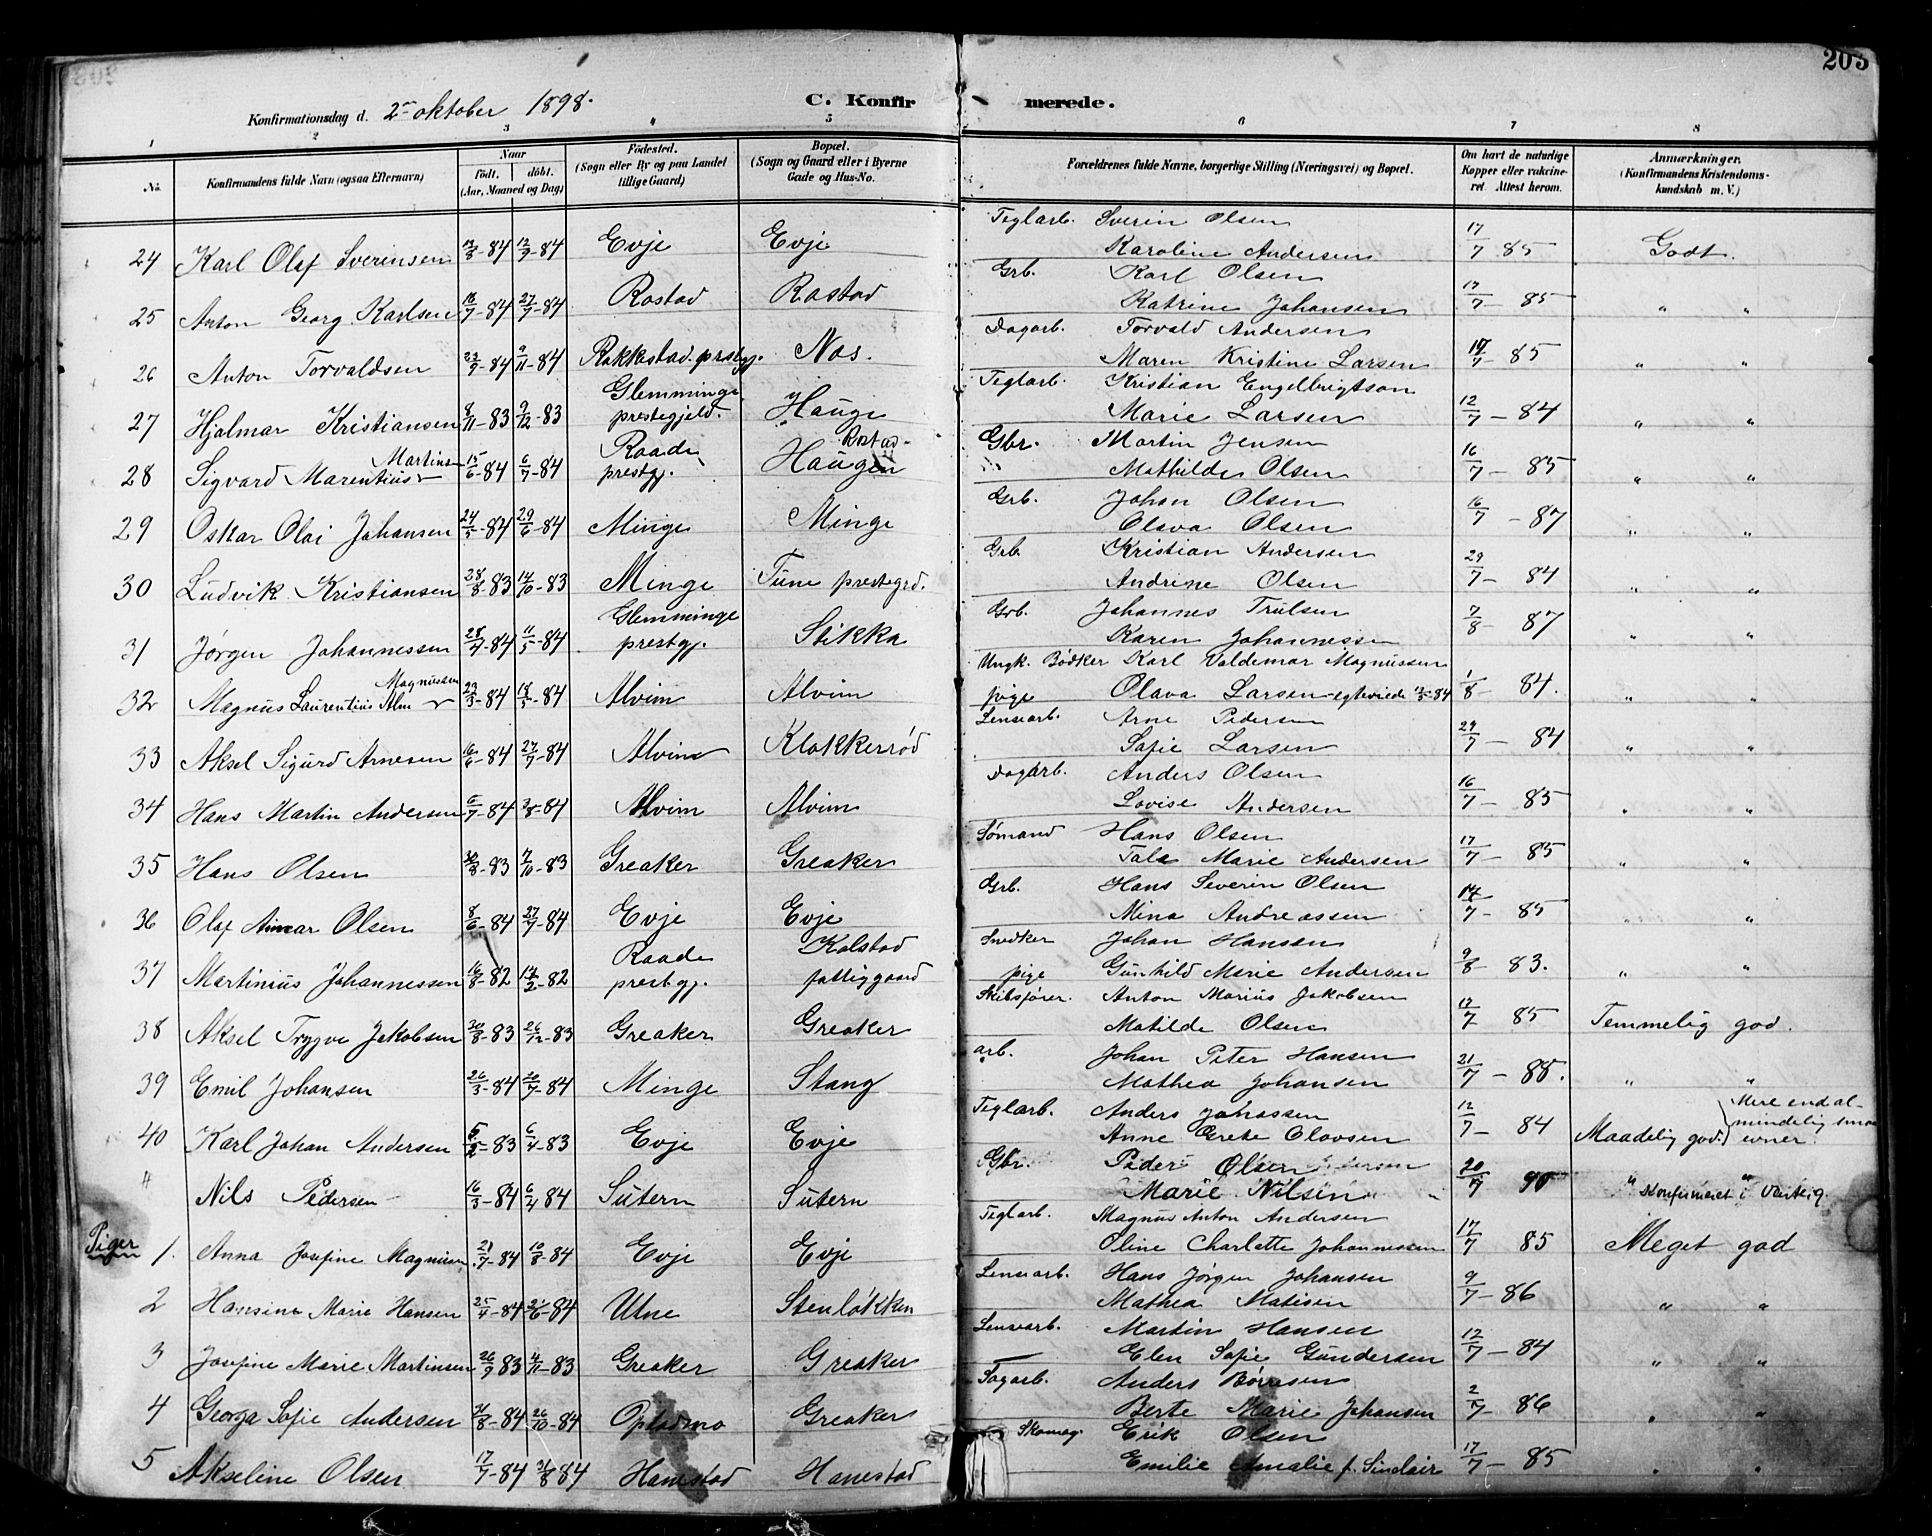 203
Konfirmationsdag d. 2den oktober 1898.
C. Konfirmerede.
1 2 3 4 5 6 7 8
No.
Konfirmandens fulde Navn (ogsaa Efternavn)
Naar
født. døbt.
(Aar, Maaned og Dag)
Fødested.
(Sogn eller By og paa Landet tillige Gaard)
Bopæl.
(Sogn og Gaard eller i Byerne Gade og Hus-No.
Forældrenes fulde Navne, borgerlige Stilling (Næringsvei) og Bopæl.
Om havt de naturlige Kopper eller vakcineret. Attest herom.
Anmærkninger.
(Konfirmandens Kristendomskundskab m. V.)
24 Karl Olaf Sverinsen -84 -84 Evje Evje Teglarb. Sverin Olsen 17/7 85 Godt.
Karoline Andersen
25 Anton Georg Karlsen 18/7-84 27/7-84 Rostad Rostad Grb. Karl Olsen 17/7-85 " "
Katrine Johansen
26 Anton Torvaldsen 9/11-84 Rakkestad prestgj. Nes. Dagarb. Torvald Andersen 17/7-85 " "
Maren Kristine Larsen
27 Hjalmar Kristiansen 8/11-83 9/12-83 Glemminge prestegjeld. Hauge Teglarb. Kristian Engelbrigtson 12/7-84 " "
Marie Larsen
28 Sigvard Marentius Martinsen 15/6-84 6/7-84 Raade prestgj. Haugen Rostad Gbr. Martin Jensen 16/7-85 " "
Mathilde Olsen
29 Oskar Olai Johansen 24/5-84 29/6-84 Minge Minge Grb. Johan Olsen 16/7-87 " "
Olava Olsen
30 Ludvik Kristiansen 28/8-83 14/10-83 Minge Tune prestegrd. Grb. Kristian Andersen 29/7-84 " "
Andrine Olsen
31 Jørgen Johannessen 28/4-84 11/5-84 Glemminge prestgj. Stikka Grb. Johannes Trulsen 7/8-87 " "
Karen Johannessen
32 Magnus Laurentius Alm Magnussen 23/3-84 18/5-84 Alvim Alvim Ungk. Bødker Karl Valdemar Magnussen 1/8-84. " "
pige Olava Larsen - egteviede -84
33 Aksel Sigurd Arnesen 16/6-84 27/7-84 Alvim Klokkerrød Lensearb. Arne Pedersen 29/7-84 " "
Safie Larsen
34 Hans Martin Andersen 6/7-84 3/8-84 Alvim Alvim Dagarb. Anders Olsen 16/7-85 " "
Lovise Andersen
35 Hans Olsen -83 7/10-83 Greaker Greaker Sømand Hans Olsen 17/7-85 " "
Tale Marie Andersen
36 Olaf Aimar Olsen 8/6-84 27/7-84 Evje Evje Grb. Hans Severin Olsen 14/7-85 " "
Mina Andreassen
37 Martinius Johannessen 16/8-82 -82 Raade prestgj. Kolstad fattiggaard Snedker Johan Hansen 9/8-83. " "
pige Gunhild Marie Andersen
38 Aksel Trygve Jakobsen -83 26/12-83 Greaker Greaker Skibsfører. Anton Marius Jakobsen 17/7 85 Temmelig god.
Matilde Olsen
39 Emil Johansen 26/3-84 20/7-84 Minge Stang arb. Johan Peter Hansen 21/7-85. " "
Mathea Johansen
40 Karl Johan Andersen -83 6/4-83 Evje Evje Teglarb. Anders Johassen 12/7-84 Maadelig god. Mere end almindelig smaa evner.
Anne Grete Olavsen
" Nils Pedersen 16/3-84 6/4 84 Sutern Sutern Gbr. Peder Olsen 20/7 90 " Konfirmeret i Varteig.
Marie Nilsen
Piger
1. Anna Josefine Magnusen 21/7-84 10/8-84 Evje Evje Teglarb. Magnus Anton Andersen 17/7 85 Meget god
Oline Charlotte Johannessen
2 Hansine Marie Hansen 25/4-84 -84 Utne Stenløkken Lensearb. Hans Jørgen Johansen 9/7-86 " "
Mathea Matisen
3 Josefine Marie Martinsen 26/9 83 4/11-83 Greaker Greaker Lensearb. Martin Hansen 12/7-84 " "
Elen Safie Gundersen
4 Georga Safie Andersen -84 26/10-84 Opstadmo Greaker Sagarb. Anders Børresen 2/7-86 " "
Berte Marie Johansen
5 Akseline Olsen 17/7-84 31/8 84 Hanestad Hanestad Skomag. Erik Olsen 17/7-85 " "
Emilie Amalie f. Sinclair